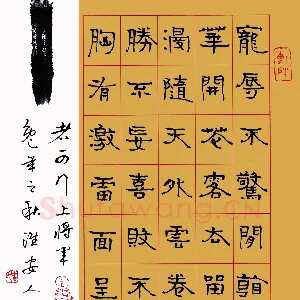 寵辱不驚閒看
華開花落去留
漫隨天外雲卷
勝不妄喜敗不
胸有激雷面呈
者可拜上將軍
兔年之秋淮安人
Shufawang.CN